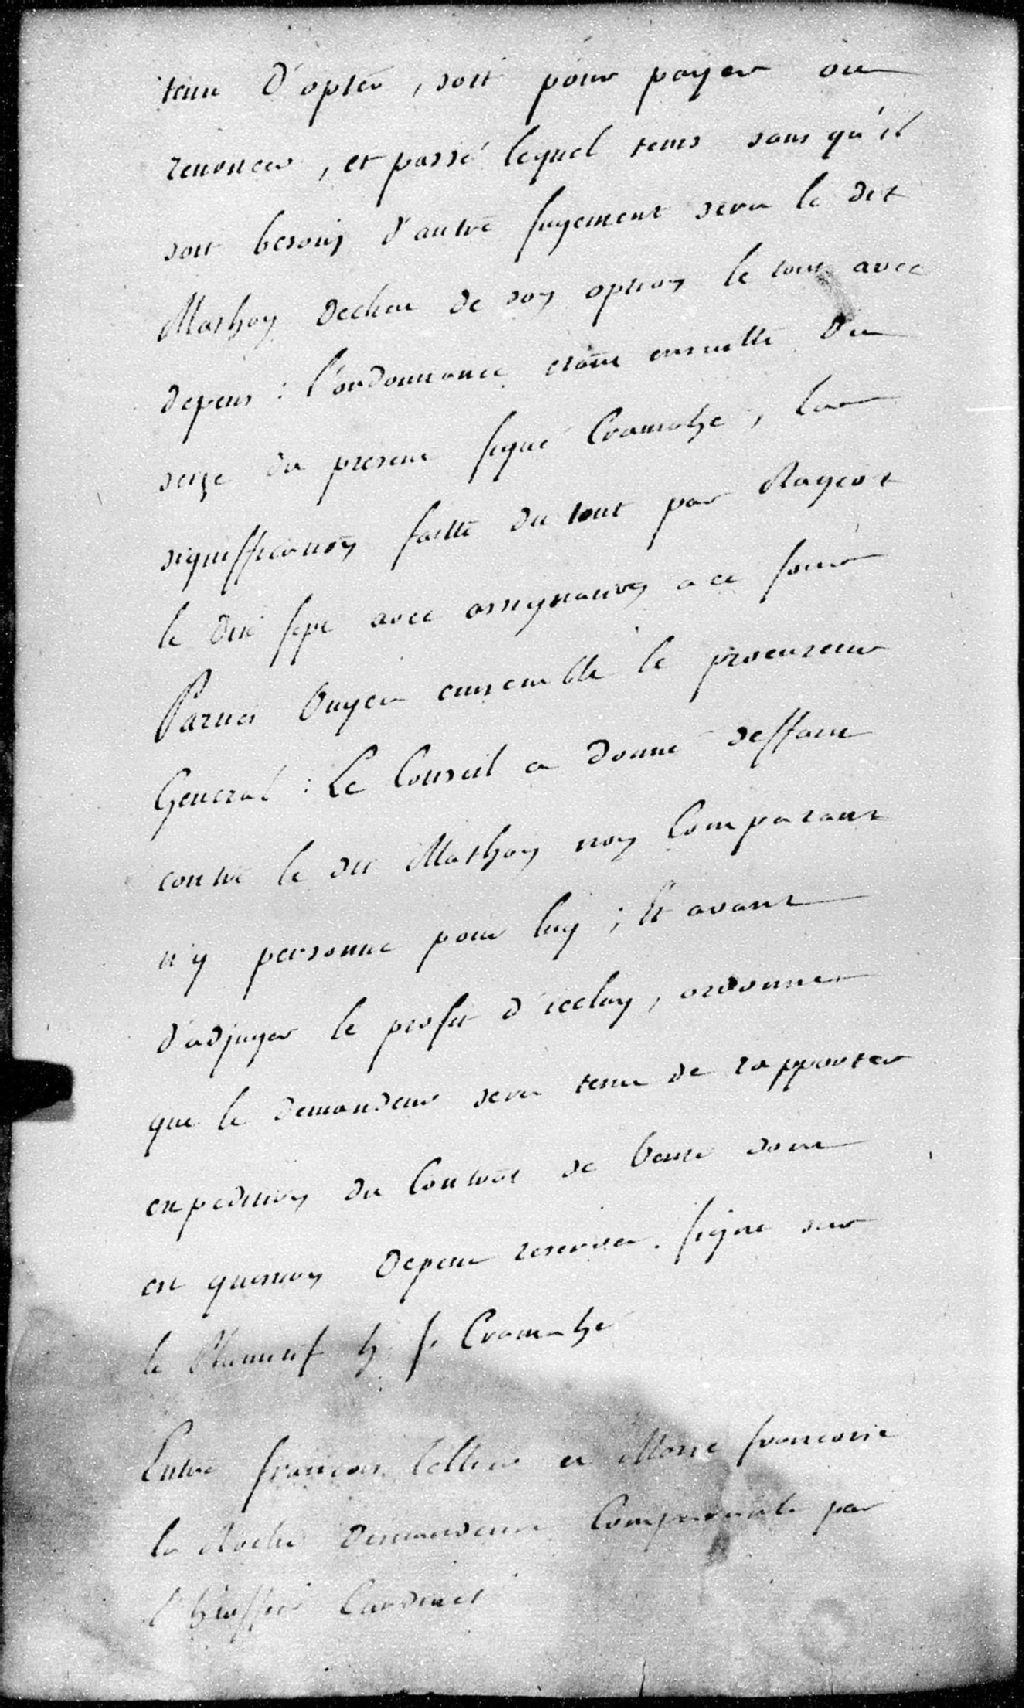 tenu d'opter, soit pour payer ou
renoncer, et passé lequel tems sans qu'il
soit besoin d'autre jugement sera le dit
Mathon dechu de son option le tout avec
depens : l'ordonnance etant ensuitte du
seize du present signé Cramahé, la
signiffication faitte du tout par Rageot
le dix sept avec assignation a ce jour
Parties Ouyes ensemble le procureur
General : Le Conseil a donné deffaut
contre le dit Mathon non Comparant
n'y personne pour luy ; Et avant
d'adjuger le profit d'iceluy, ordonne
que le demandeur sera tenu de rapporter
expedition du Contrat de Vente dont
est question Depens reservés. signé sur
le Plumitif h. t. Cramahé
Entre françois et Marie francoise
la Roche Demandeurs Comparants par
l'huissier Cardinet